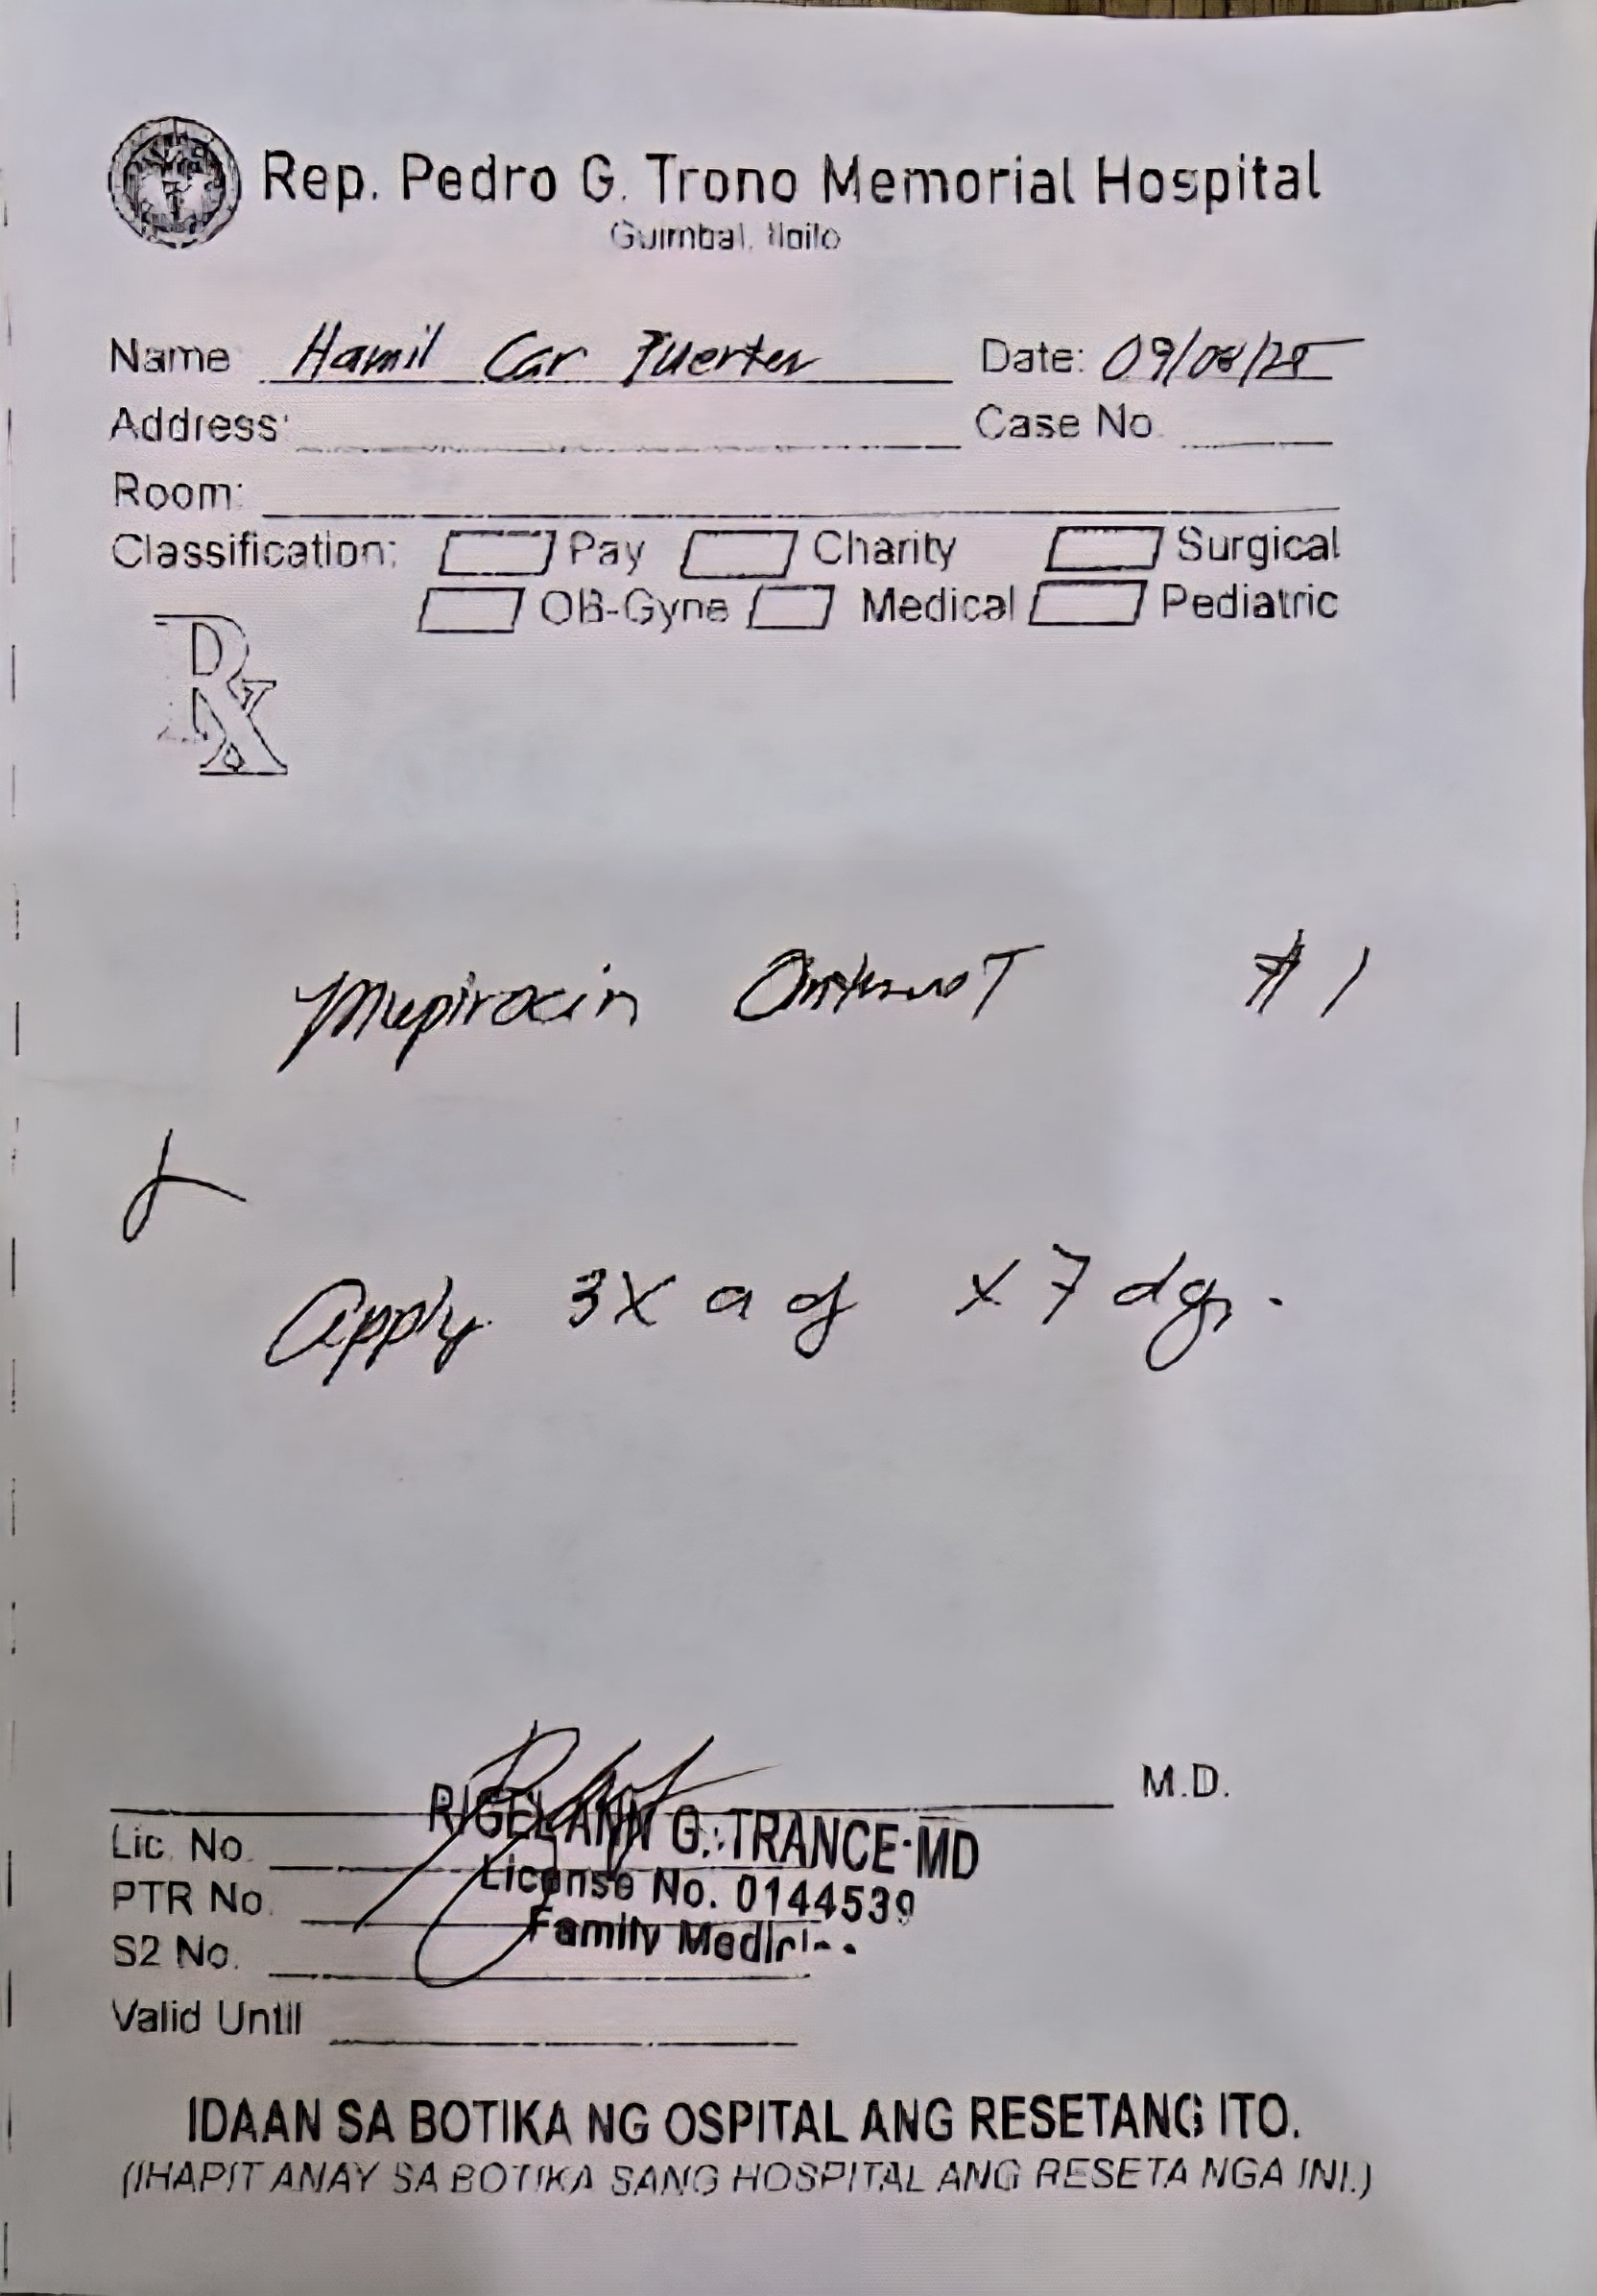 Rep. Pedro G. Trono Memorial Hospital
Guimbal, Iloilo
Name Hamil Car Puerter Date: 09/08/25
Address: Case No.
Room:
Classification: Pay Charity Surgical
OB-Gyne Medical Pediatric
Rx
Mupirocin Ointment #1
Apply 3x a d x 7 dys.
M.D.
RIGEL ANN G. TRANCE MD
Lic. No.
License No. 0144539
PTR No.
Family Medicine
S2 No.
Valid Until
IDAAN SA BOTIKA NG OSPITAL ANG RESETANG ITO.
(IHAPIT ANAY SA BOTIKA SANG HOSPITAL ANG RESETA NGA INI.)